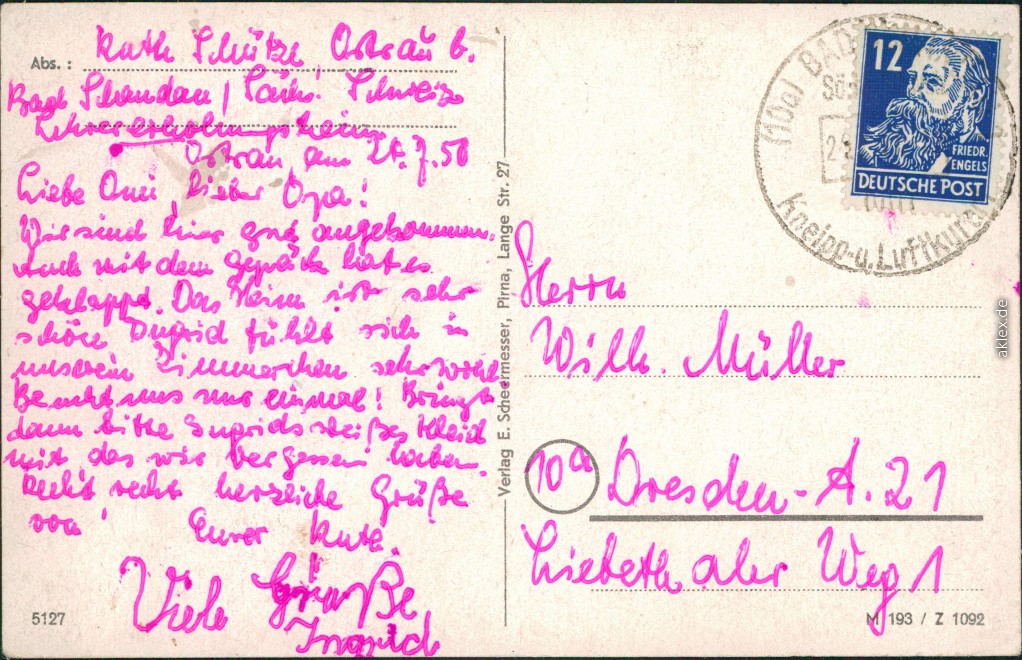 Abs.: Ruth Schütze, Ostrau b.
Bad Schandau / Sächs. Schweiz
Lehrererholungsheim
Ostrau, am 21.7.50
Liebe Omi, lieber Opa!
Wir sind hier gut angekommen.
Auch mit dem Gepäck hat es
geklappt. Das Heim ist sehr
schön. Ingrid fühlt sich in
unserem Zimmerchen sehr wohl.
Besucht uns nur einmal! Bringt
dann bitte Ingrids weißes Kleid
mit das wir vergessen haben.
Recht recht herzliche Grüße
von Eurer Ruth.
Viele Grüße
Ingrid
5127
Verlag E. Scheermesser, Pirna, Lange Str. 27
(10a) BAD
Kneipp- u. Luftkur
12
FRIEDR
ENGELS
DEUTSCHE POST
Herrn
Wilh. Müller
10a Dresden-A. 21
Liebethaler Weg 1
M 193 / Z 1092
aklex.de